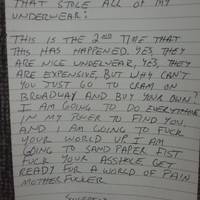 THAT STOLE ALL OF MY
UNDERWEAR:
THIS IS THE 2ND TIME THAT
THIS HAS HAPPENED. YES, THEY
ARE NICE UNDERWEAR, YES, THEY
ARE EXPENSIVE, BUT WHY CAN'T
YOU JUST GO TO CRAM ON
BROADWAY AND BUY YOUR OWN?
I AM GOING TO DO EVERYTHING
IN MY POWER TO FIND YOU.
AND I AM GOING TO FUCK
YOUR WORLD UP. I AM
GOING TO SAND PAPER FIST
FUCK YOUR ASSHOLE. GET
READY FOR A WORLD OF PAIN
MOTHERFUCKER